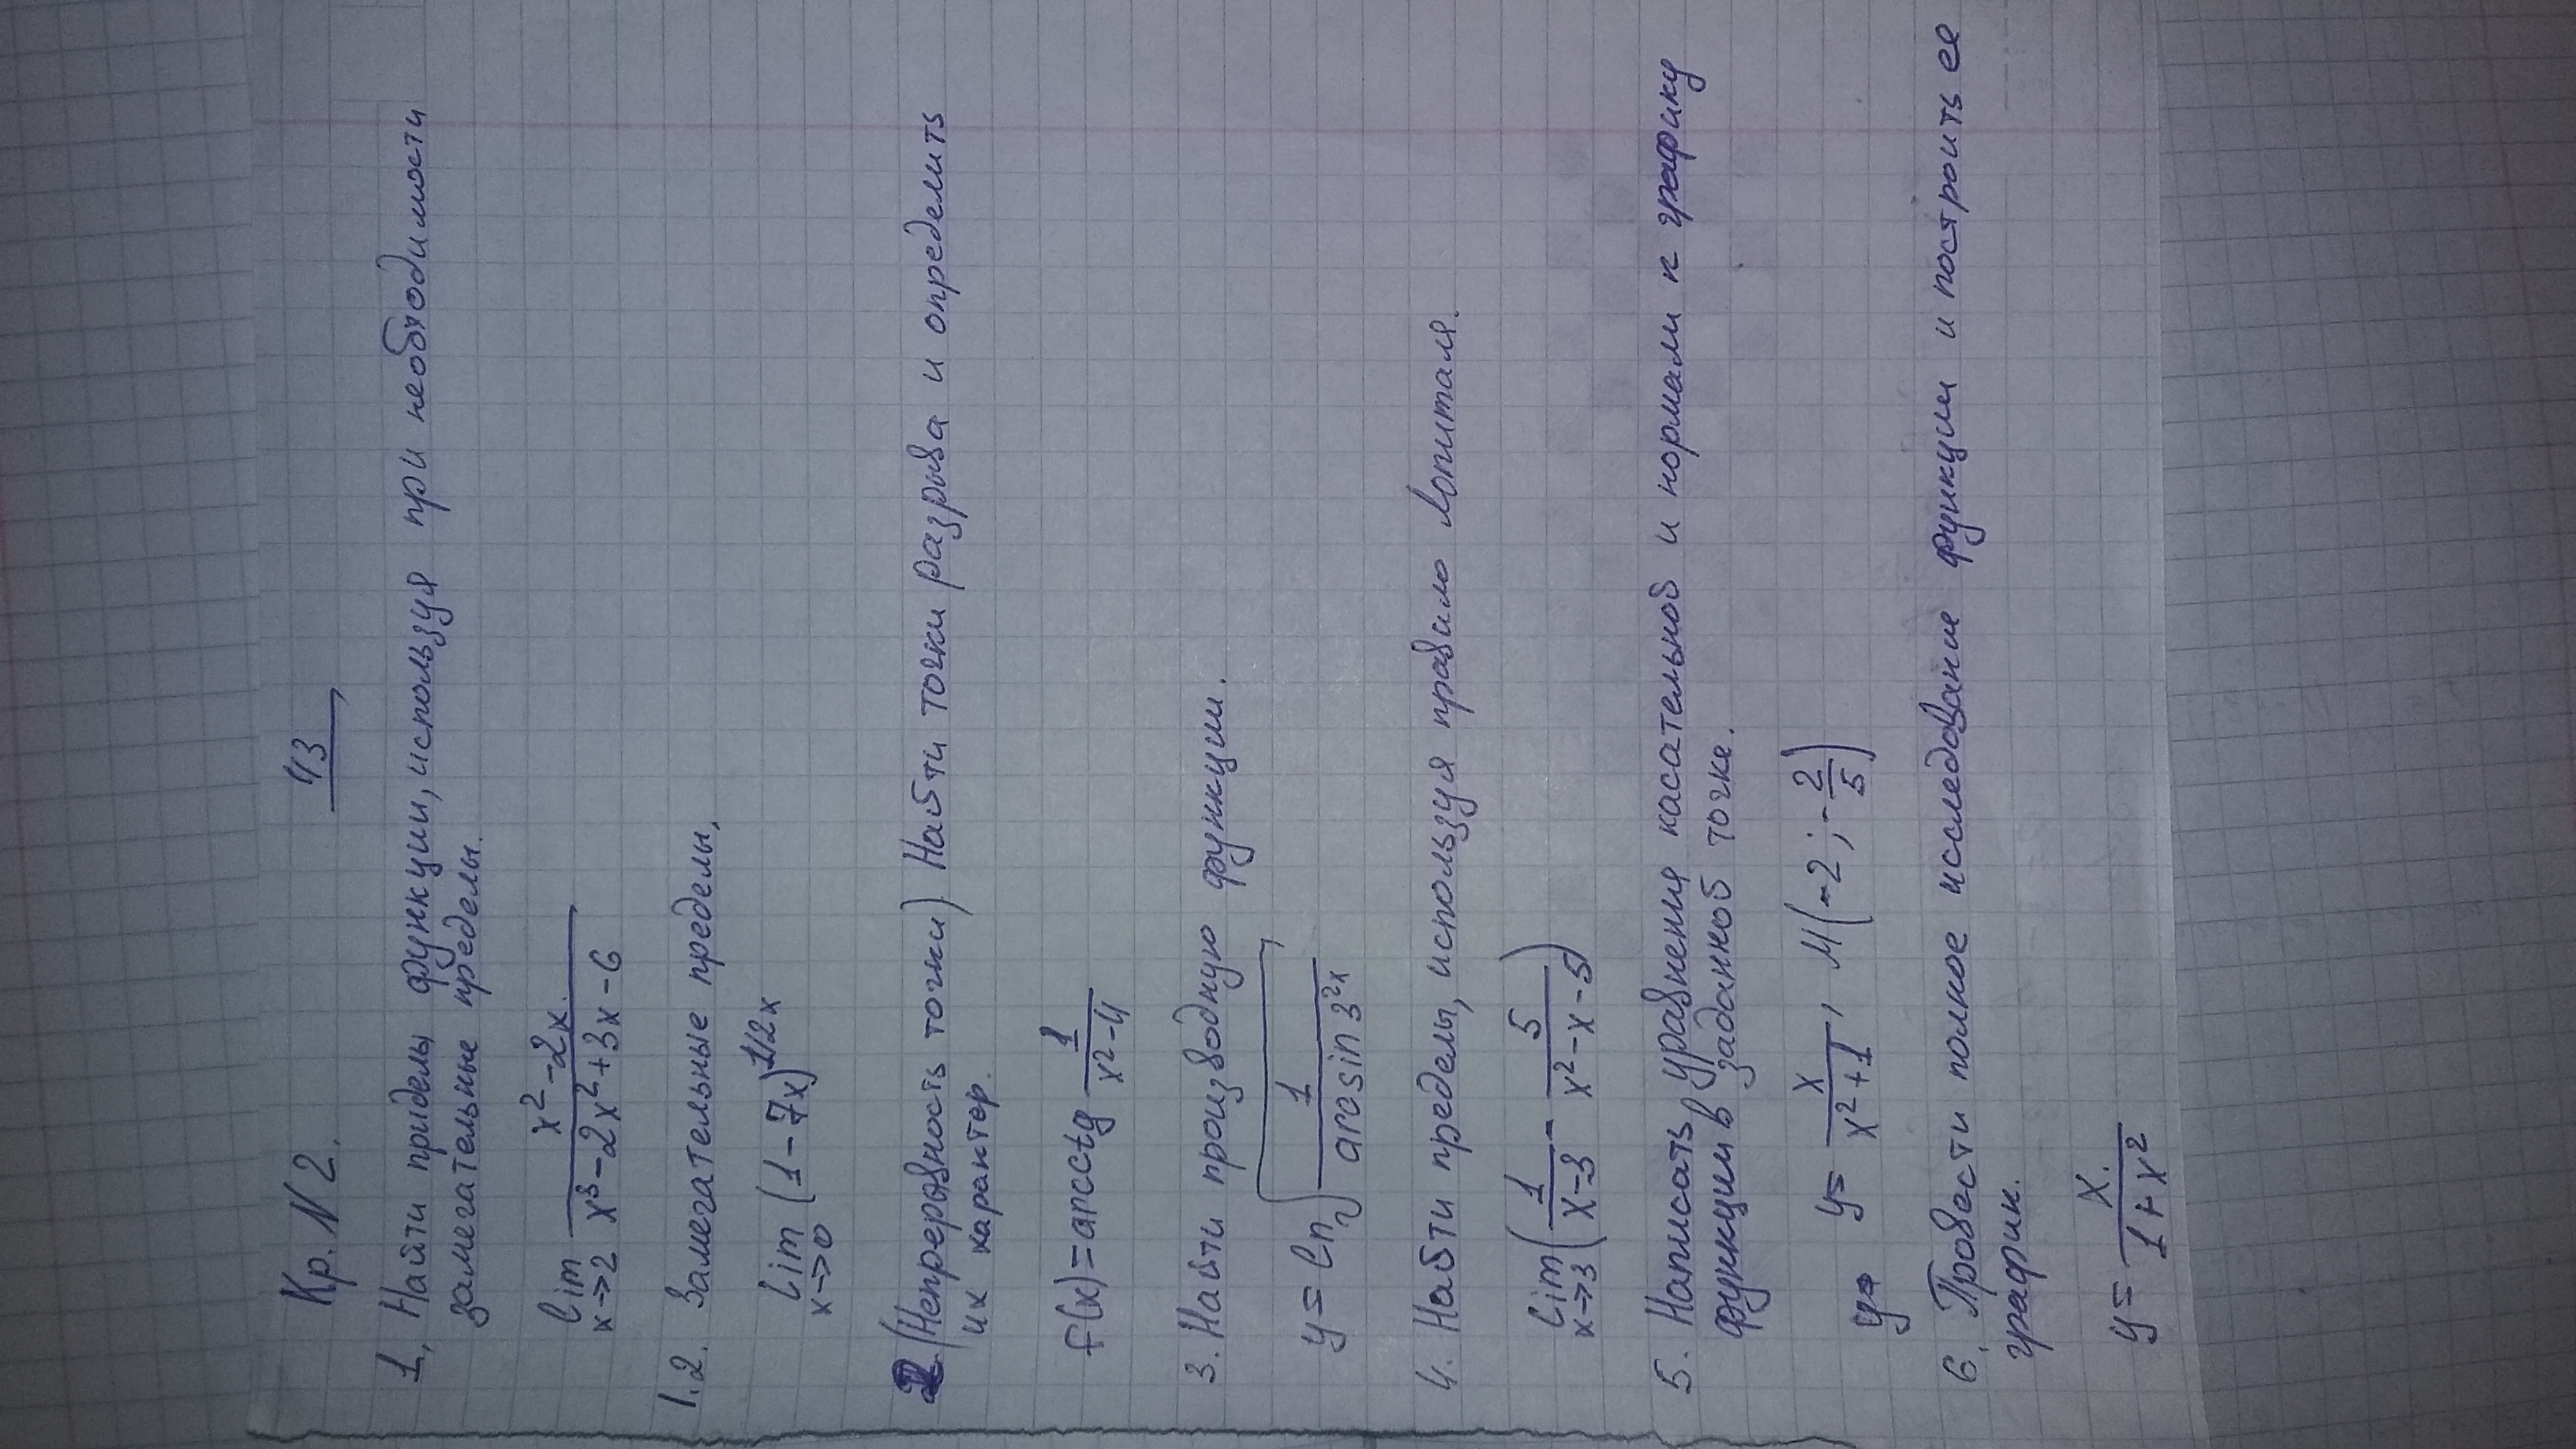 Кр. N 2.
43
1, Найти приделы функции, используя при необходимости
замечательные пределы.
lim x→2 (x² - 2x)/(x³ - 2x² + 3x - 6)
1.2. Замечательные пределы,
lim x→0 (1 - 7x)^1/2x
2 (Непрерывность точки) Найти точки разрыва и определить
их характер.
f(x) = arcctg 1/(x² - 4)
3. Найти производную функции.
y = ln √(1/(arcsin 3^2x))
4. Найти пределы, используя правило Лопиталя.
lim x→3 (1/(x - 3) - 5/(x² - x - 5))
5. Написать уравнения касательной и нормали к графику
функции в заданной точке.
y= x/(x² + 1), M(-2; -2/5)
6. Провести полное исследование функции и построить ее
график.
y = x/(1 + x²)